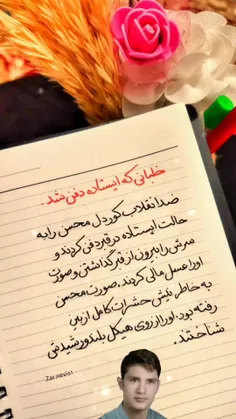 خلبانی که ایستاده دفن شد.
ضد انقلاب کوردل محسن را به
حالت ایستاده در قبر دفن کردند و
سرش را بیرون از قبر گذاشتن و صورت
او را عسل مالی کردند. صورت محسن
به خاطر نیش حشرات کامل از بین
رفته بود. او را از روی هیکل بلند و رشیدش
شناختند.
Zar.nevis1